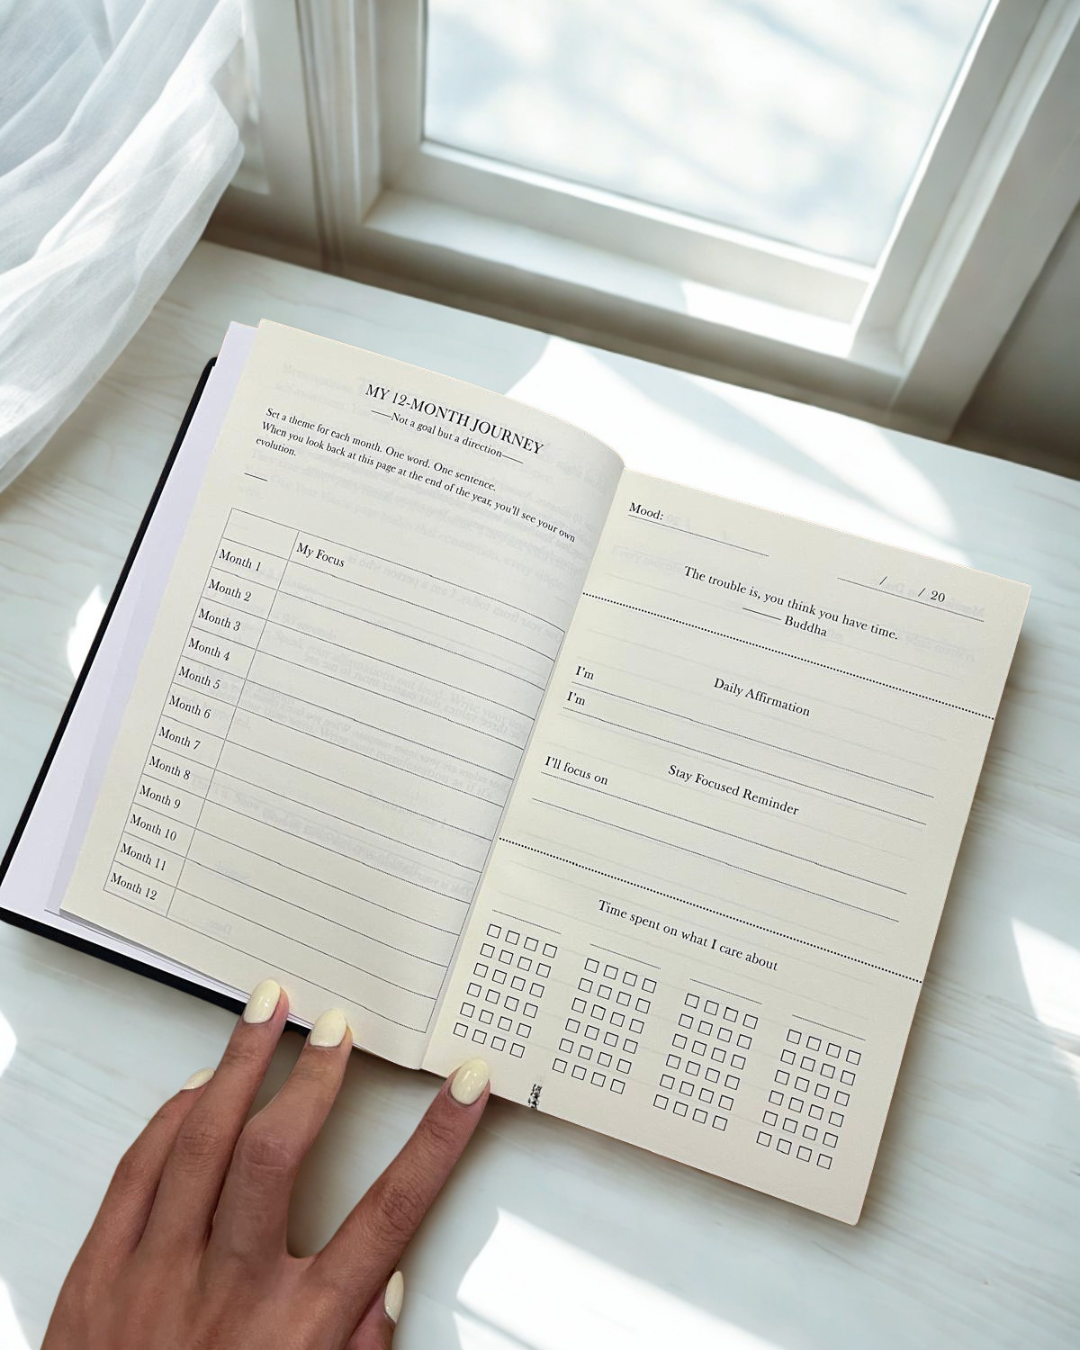 MY 12-MONTH JOURNEY
—Not a goal but a direction—
Set a theme for each month. One word. One sentence.
When you look back at this page at the end of the year, you'll see your own
evolution.
My Focus
Month 1
Month 2
Month 3
Month 4
Month 5
Month 6
Month 7
Month 8
Month 9
Month 10
Month 11
Month 12
Mood:
/ / 20
The trouble is, you think you have time.
—— Buddha
Daily Affirmation
I'm
I'm
Stay Focused Reminder
I'll focus on
Time spent on what I care about